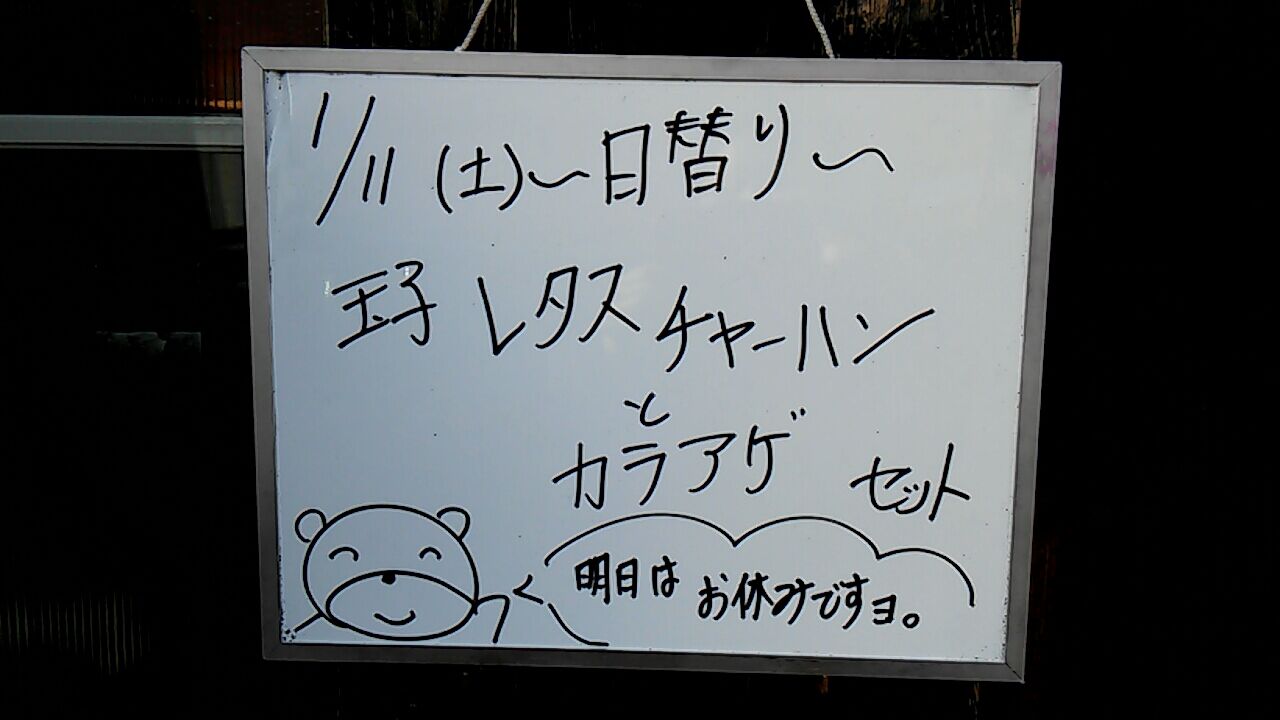 1/11(土)〜日替り〜
玉子レタスチャーハン
と
カラアゲ セット
明日は お休みですヨ。